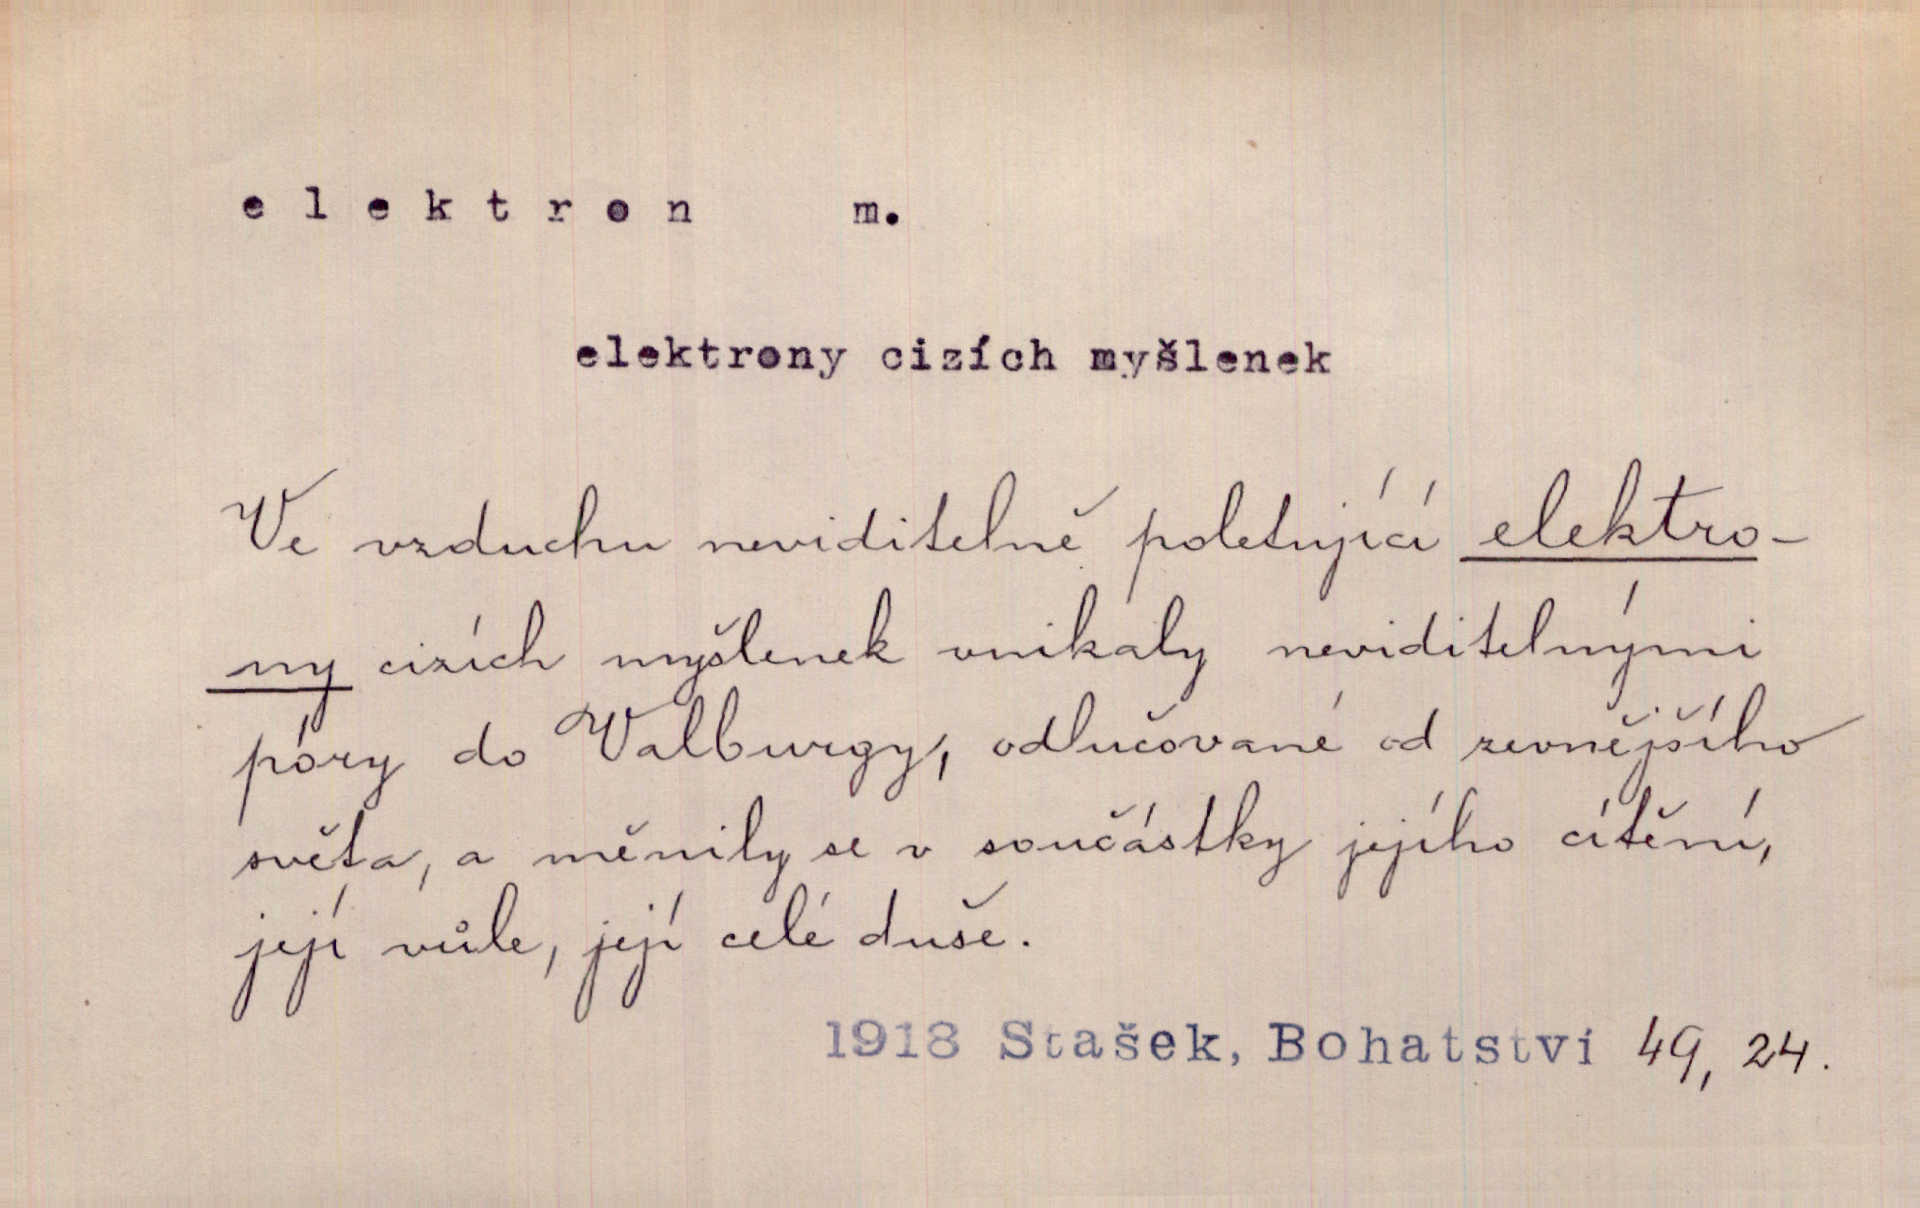 elektron m.
elektrony cizích myšlenek
Ve vzduchu neviditelně poletující elektro-
ny cizích myšlenek vnikaly neviditelnými
póry do Valburgy, odlučované od zevnějšího
světa, a měnily se v součástky jejího cítění,
její vůle, její celé duše.
1918 Stašek, Bohatství 49, 24.